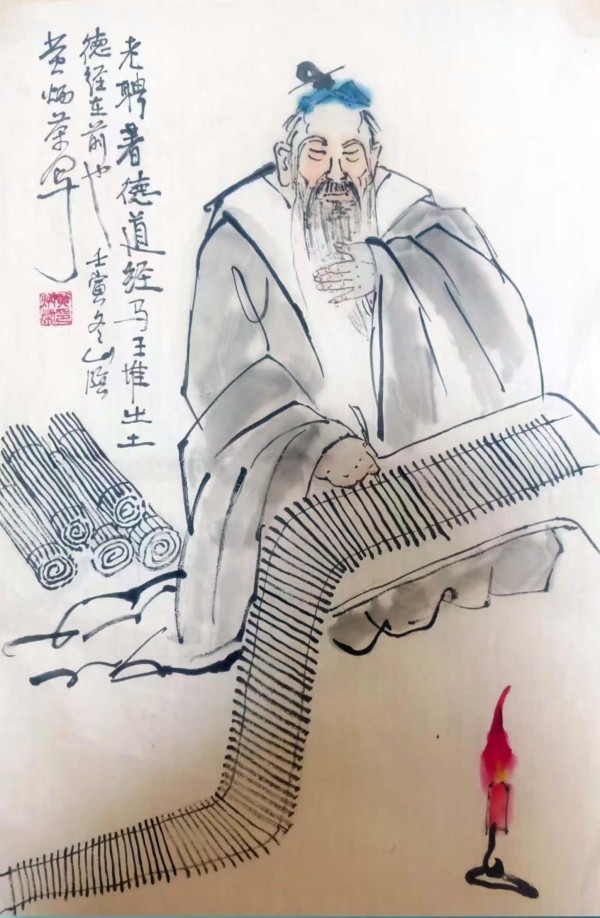 老聘著德道经马王堆出土
德经在前也
壬寅冬山陰
黄炳荣写